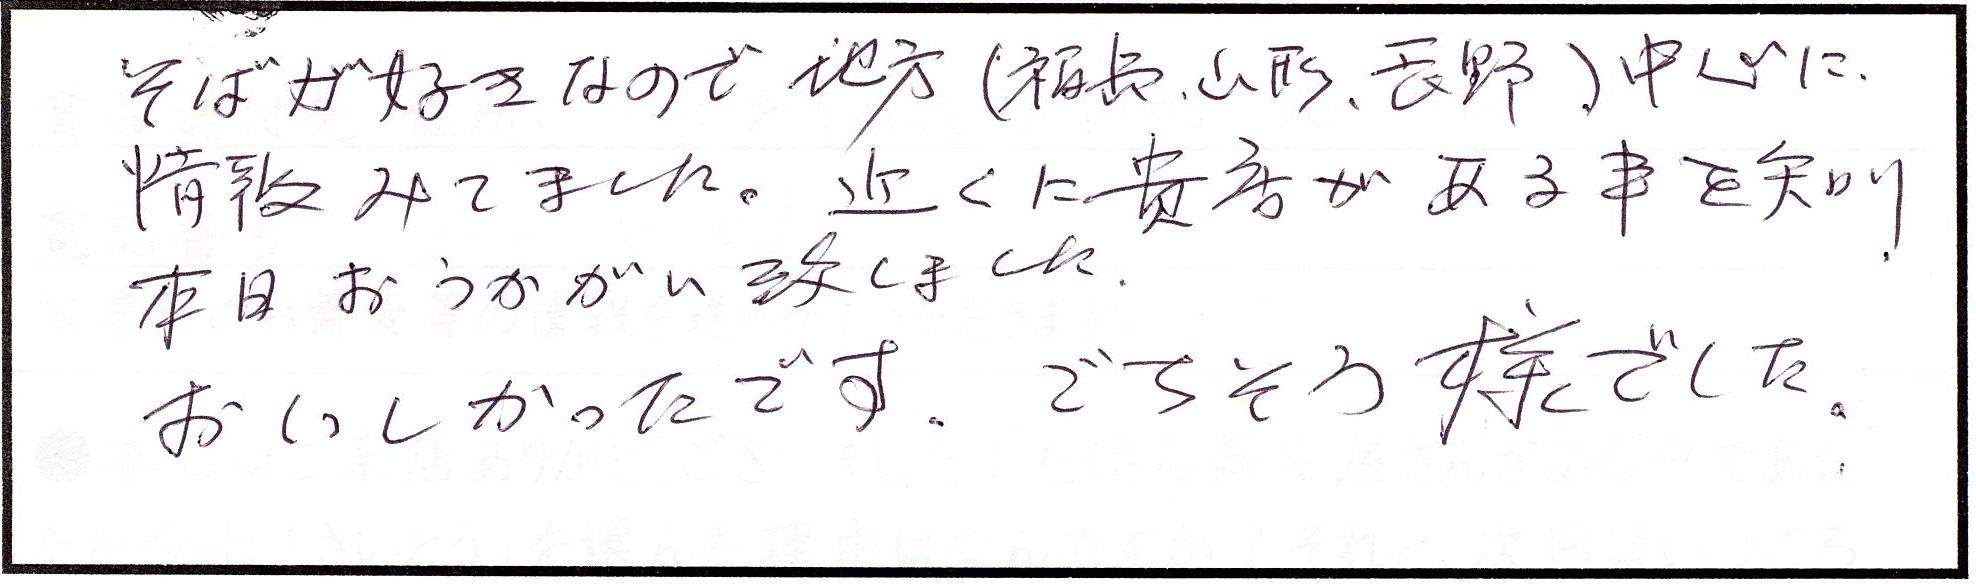 そばが好きなので地方(福島、山形、長野)中心に、
情報みてました。近くに貴店がある事を知り、
本日おうかがい致しました。
おいしかったです。ごちそう様でした。